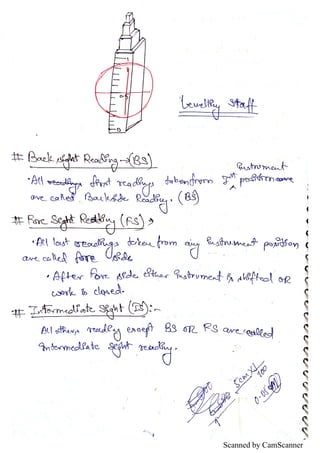 1
0.5
0
Levelling Staff
# Back sight Reading → (BS)
Instrument
• All first readings taken from 1st position are
are called Backside Reading. (BS)
# Fore Sight Reading (FS) →
• All last readings taken from any Instrument position
are called fore side
• After Fore side either Instrument is shifted OR
work is closed.
# Intermediate Sight (IS) :-
All others readly except BS OR FS are called
Intermediate sight reading.
5cm x 1
100
0.05
Scanned by CamScanner